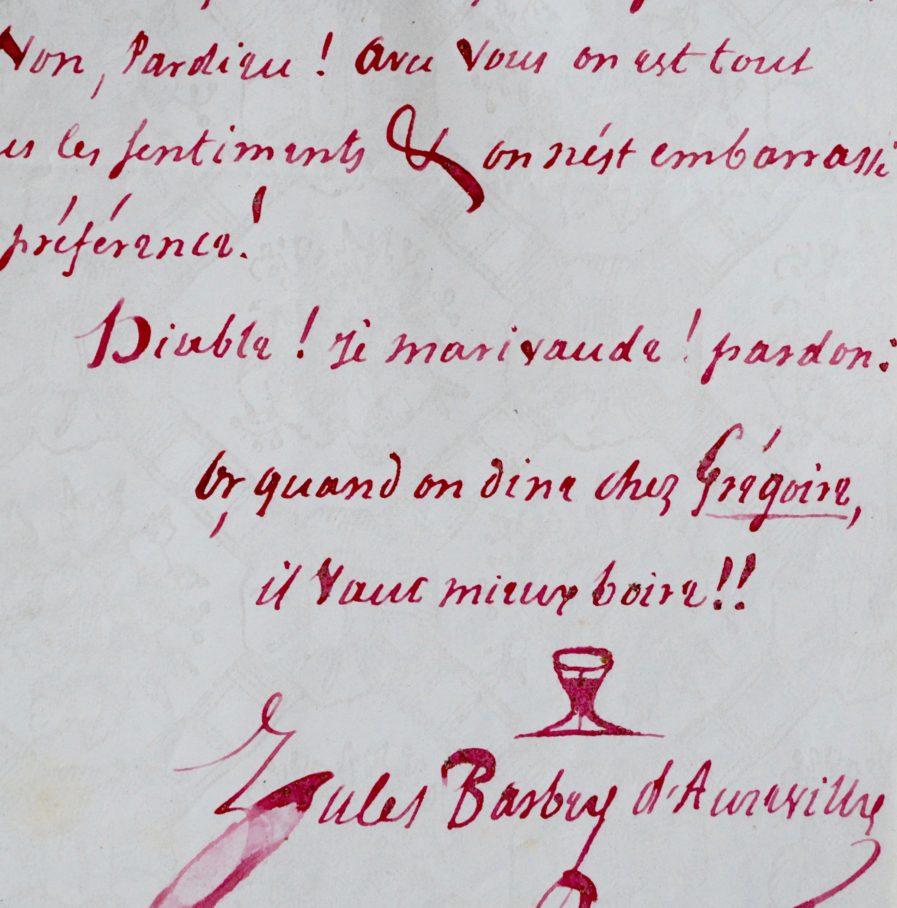 Non, Pardieu ! Avec Vous on est tout
les sentiments & on n'est embarrassé
préférence !
Diable ! Je marivaude ! pardon.
Or, quand on dine chez Grégoire,
il Vaut mieux boire !!
Jules Barbey d'Aurevilly